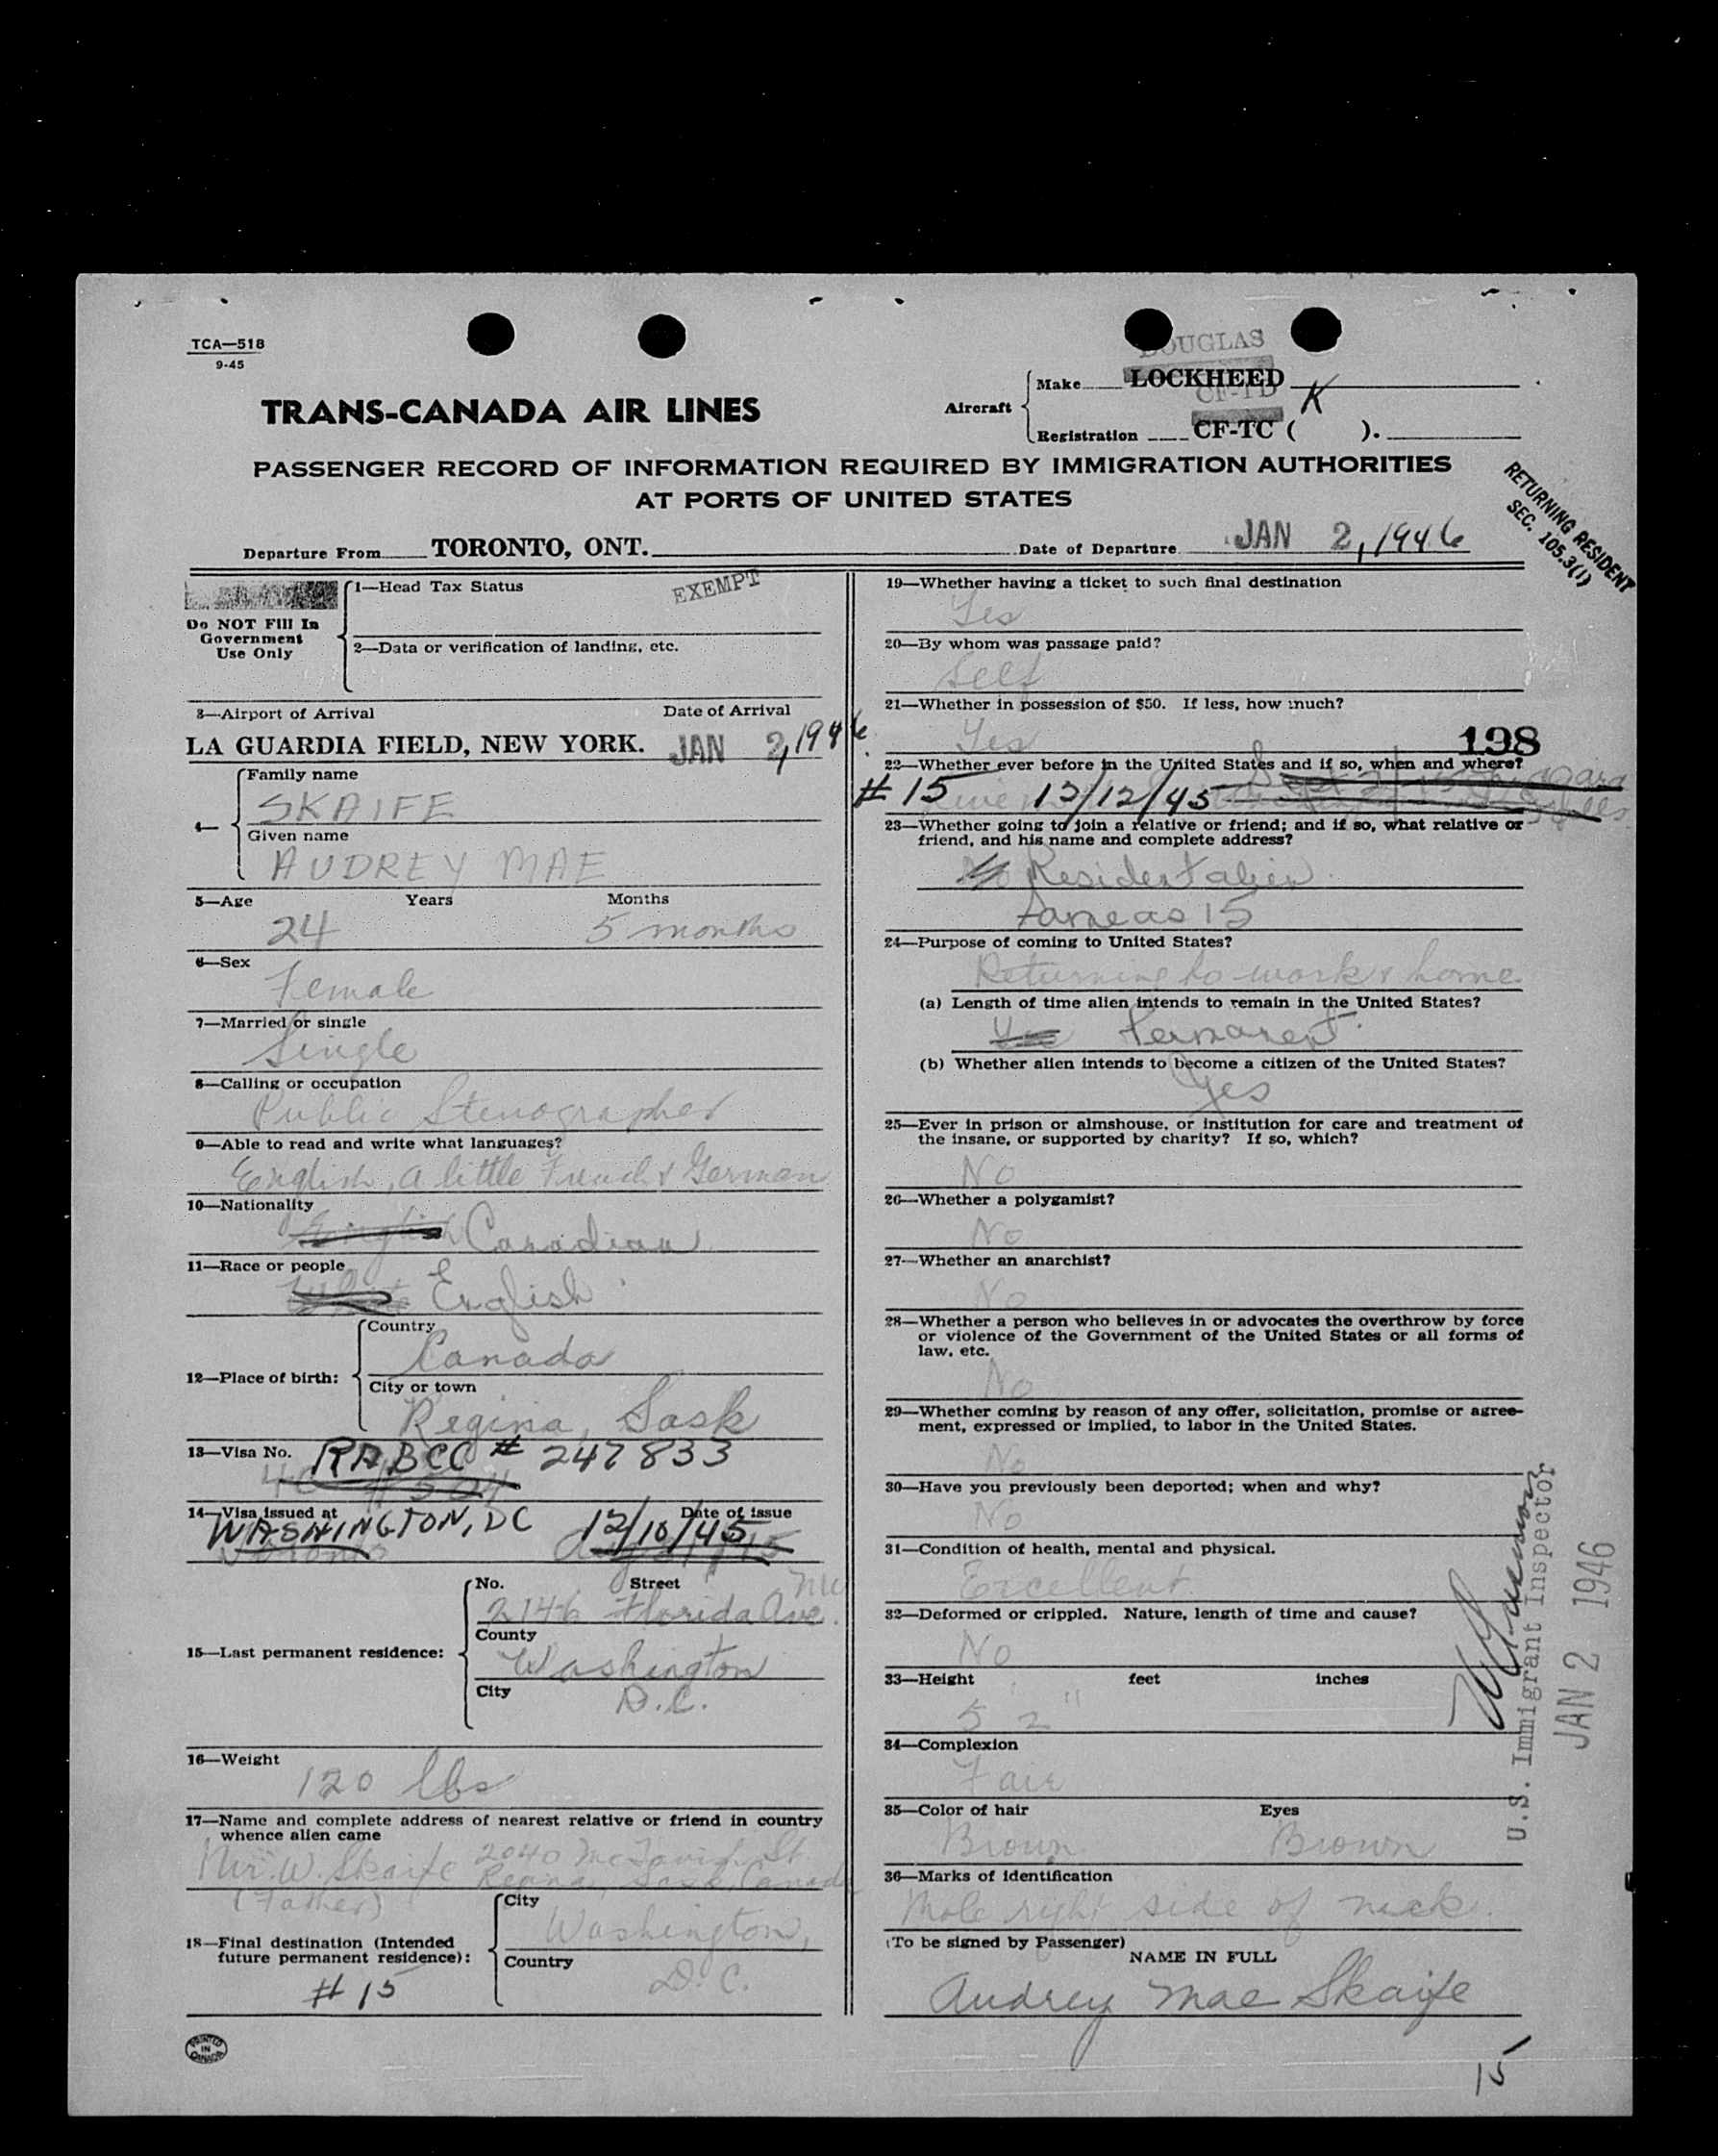 TCA—518
9-45
DOUGLAS
Aircraft
Make LOCKHEED
CF-TD
K
Registration CF-TC ( ).
TRANS-CANADA AIR LINES
PASSENGER RECORD OF INFORMATION REQUIRED BY IMMIGRATION AUTHORITIES
AT PORTS OF UNITED STATES
RETURNING RESIDENT
SEC. 105.3(1)
Departure From TORONTO, ONT. Date of Departure JAN 2, 1946
Do NOT Fill In
Government
Use Only
1—Head Tax Status EXEMPT
2—Data or verification of landing, etc.
3—Airport of Arrival Date of Arrival
LA GUARDIA FIELD, NEW YORK. JAN 2, 1946
4—
Family name
SKAIFE
Given name
AUDREY MAE
5—Age Years Months
24 5 months
6—Sex
Female
7—Married or single
Single
8—Calling or occupation
Public Stenographer
9—Able to read and write what languages?
English, a little French & German
10—Nationality
English Canadian
11—Race or people
White English
12—Place of birth:
Country
Canada
City or town
Regina, Sask
13—Visa No. RABCC # 247833
14—Visa issued at Date of issue
WASHINGTON, DC 12/10/45
Toronto
15—Last permanent residence:
No. Street
2146 Florida Ave. NW
County
Washington
City D.C.
16—Weight
120 lbs
17—Name and complete address of nearest relative or friend in country
whence alien came
Mr. W. Skaife 2040 McTavish St.
Regina, Sask, Canada
(Father)
18—Final destination (Intended
future permanent residence):
# 15
City
Washington,
Country
D.C.
PRINTED
IN
CANADA
19—Whether having a ticket to such final destination
Yes
20—By whom was passage paid?
Self
21—Whether in possession of $50. If less, how much?
Yes
198
22—Whether ever before in the United States and if so, when and where?
# 15 12/12/45
23—Whether going to join a relative or friend; and if so, what relative or
friend, and his name and complete address?
No Resident alien
Same as 15
24—Purpose of coming to United States?
Returning to work & home
(a) Length of time alien intends to remain in the United States?
Permanent
(b) Whether alien intends to become a citizen of the United States?
Yes
25—Ever in prison or almshouse, or institution for care and treatment of
the insane, or supported by charity? If so, which?
No
26—Whether a polygamist?
No
27—Whether an anarchist?
No
28—Whether a person who believes in or advocates the overthrow by force
or violence of the Government of the United States or all forms of
law, etc.
No
29—Whether coming by reason of any offer, solicitation, promise or agree-
ment, expressed or implied, to labor in the United States.
No
30—Have you previously been deported; when and why?
No
31—Condition of health, mental and physical.
Excellent
32—Deformed or crippled. Nature, length of time and cause?
No
33—Height feet inches
5' 2"
34—Complexion
Fair
35—Color of hair Eyes
Brown Brown
36—Marks of identification
Mole right side of neck.
(To be signed by Passenger)
NAME IN FULL
Audrey Mae Skaife
U.S. Immigrant Inspector
JAN 2 1946
15